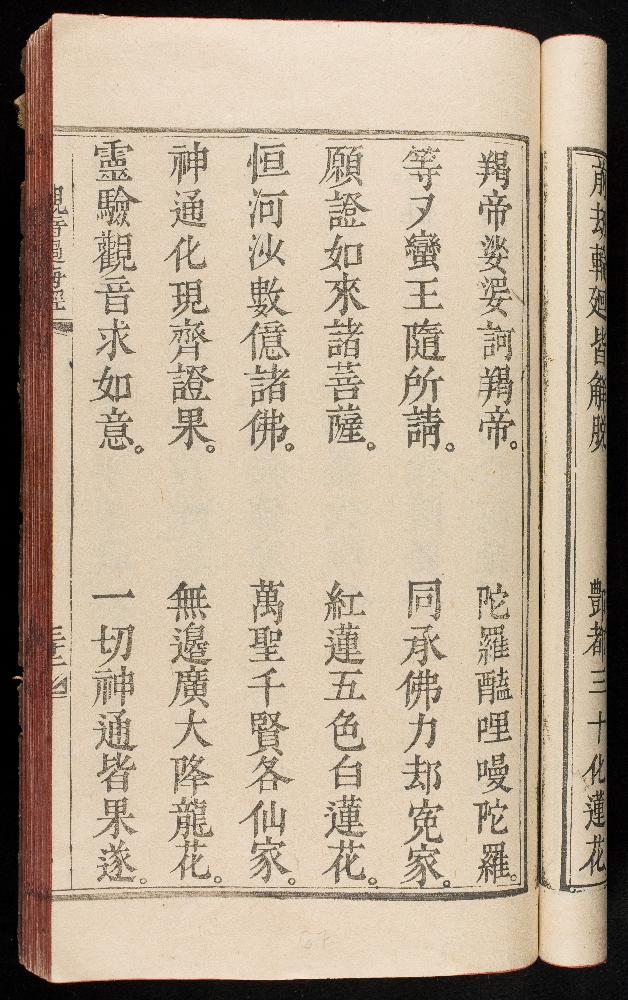 前刼輪廻皆解脫 酆都三十化蓮花
羯帝娑婆訶羯帝。 陀羅醯哩嗳陀羅。
等叉蠻王隨所請。 同承佛力却寃家。
願證如來諸菩薩。 紅蓮五色白蓮花。
恒河沙數億諸佛。 萬聖千賢各仙家。
神通化現齊證果。 無邉廣大降龍花。
靈驗觀音求如意。 一切神通皆果遂。
觀音過海經